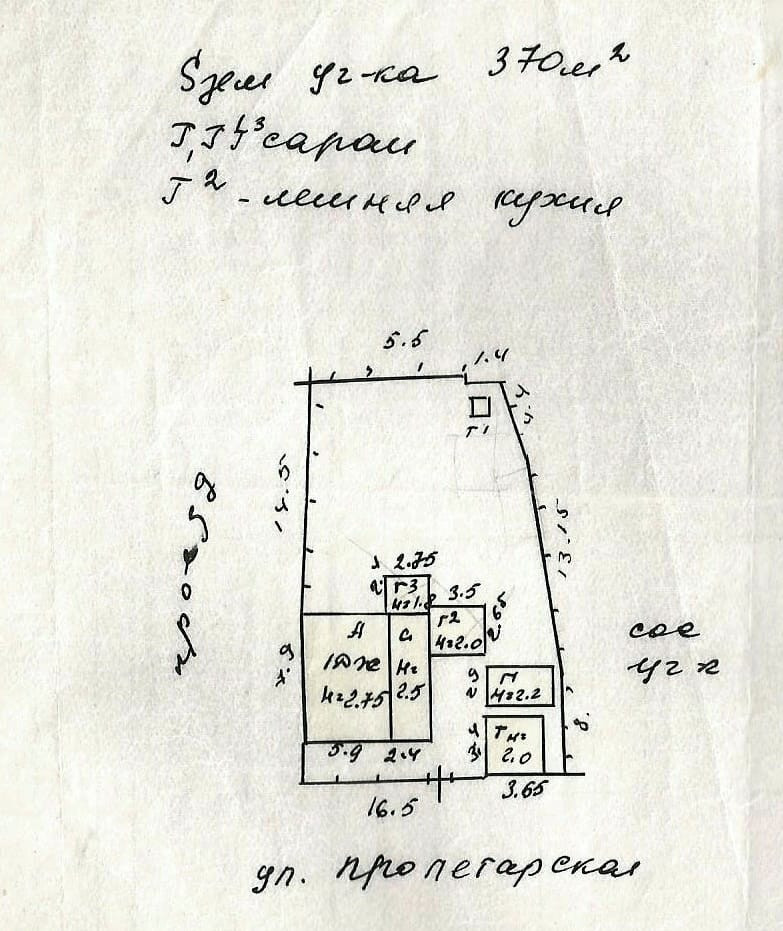 Sзем уч-ка 370м²
Г, Г¹, Г³ сараи
Г² - летняя кухня
5.5
1.4
4.4
Г1
14.5
проезд
13.15
2.75
Г3
н=1.8
3.5
Г2
н=2.0
2.65
А
1эж
н=2.75
а
н=
2.5
7.9
сос
уч-к
2.9
н=2.2
8.
Г н=
2.0
3.4
5.9
2.4
3.65
16.5
ул. Пролетарская